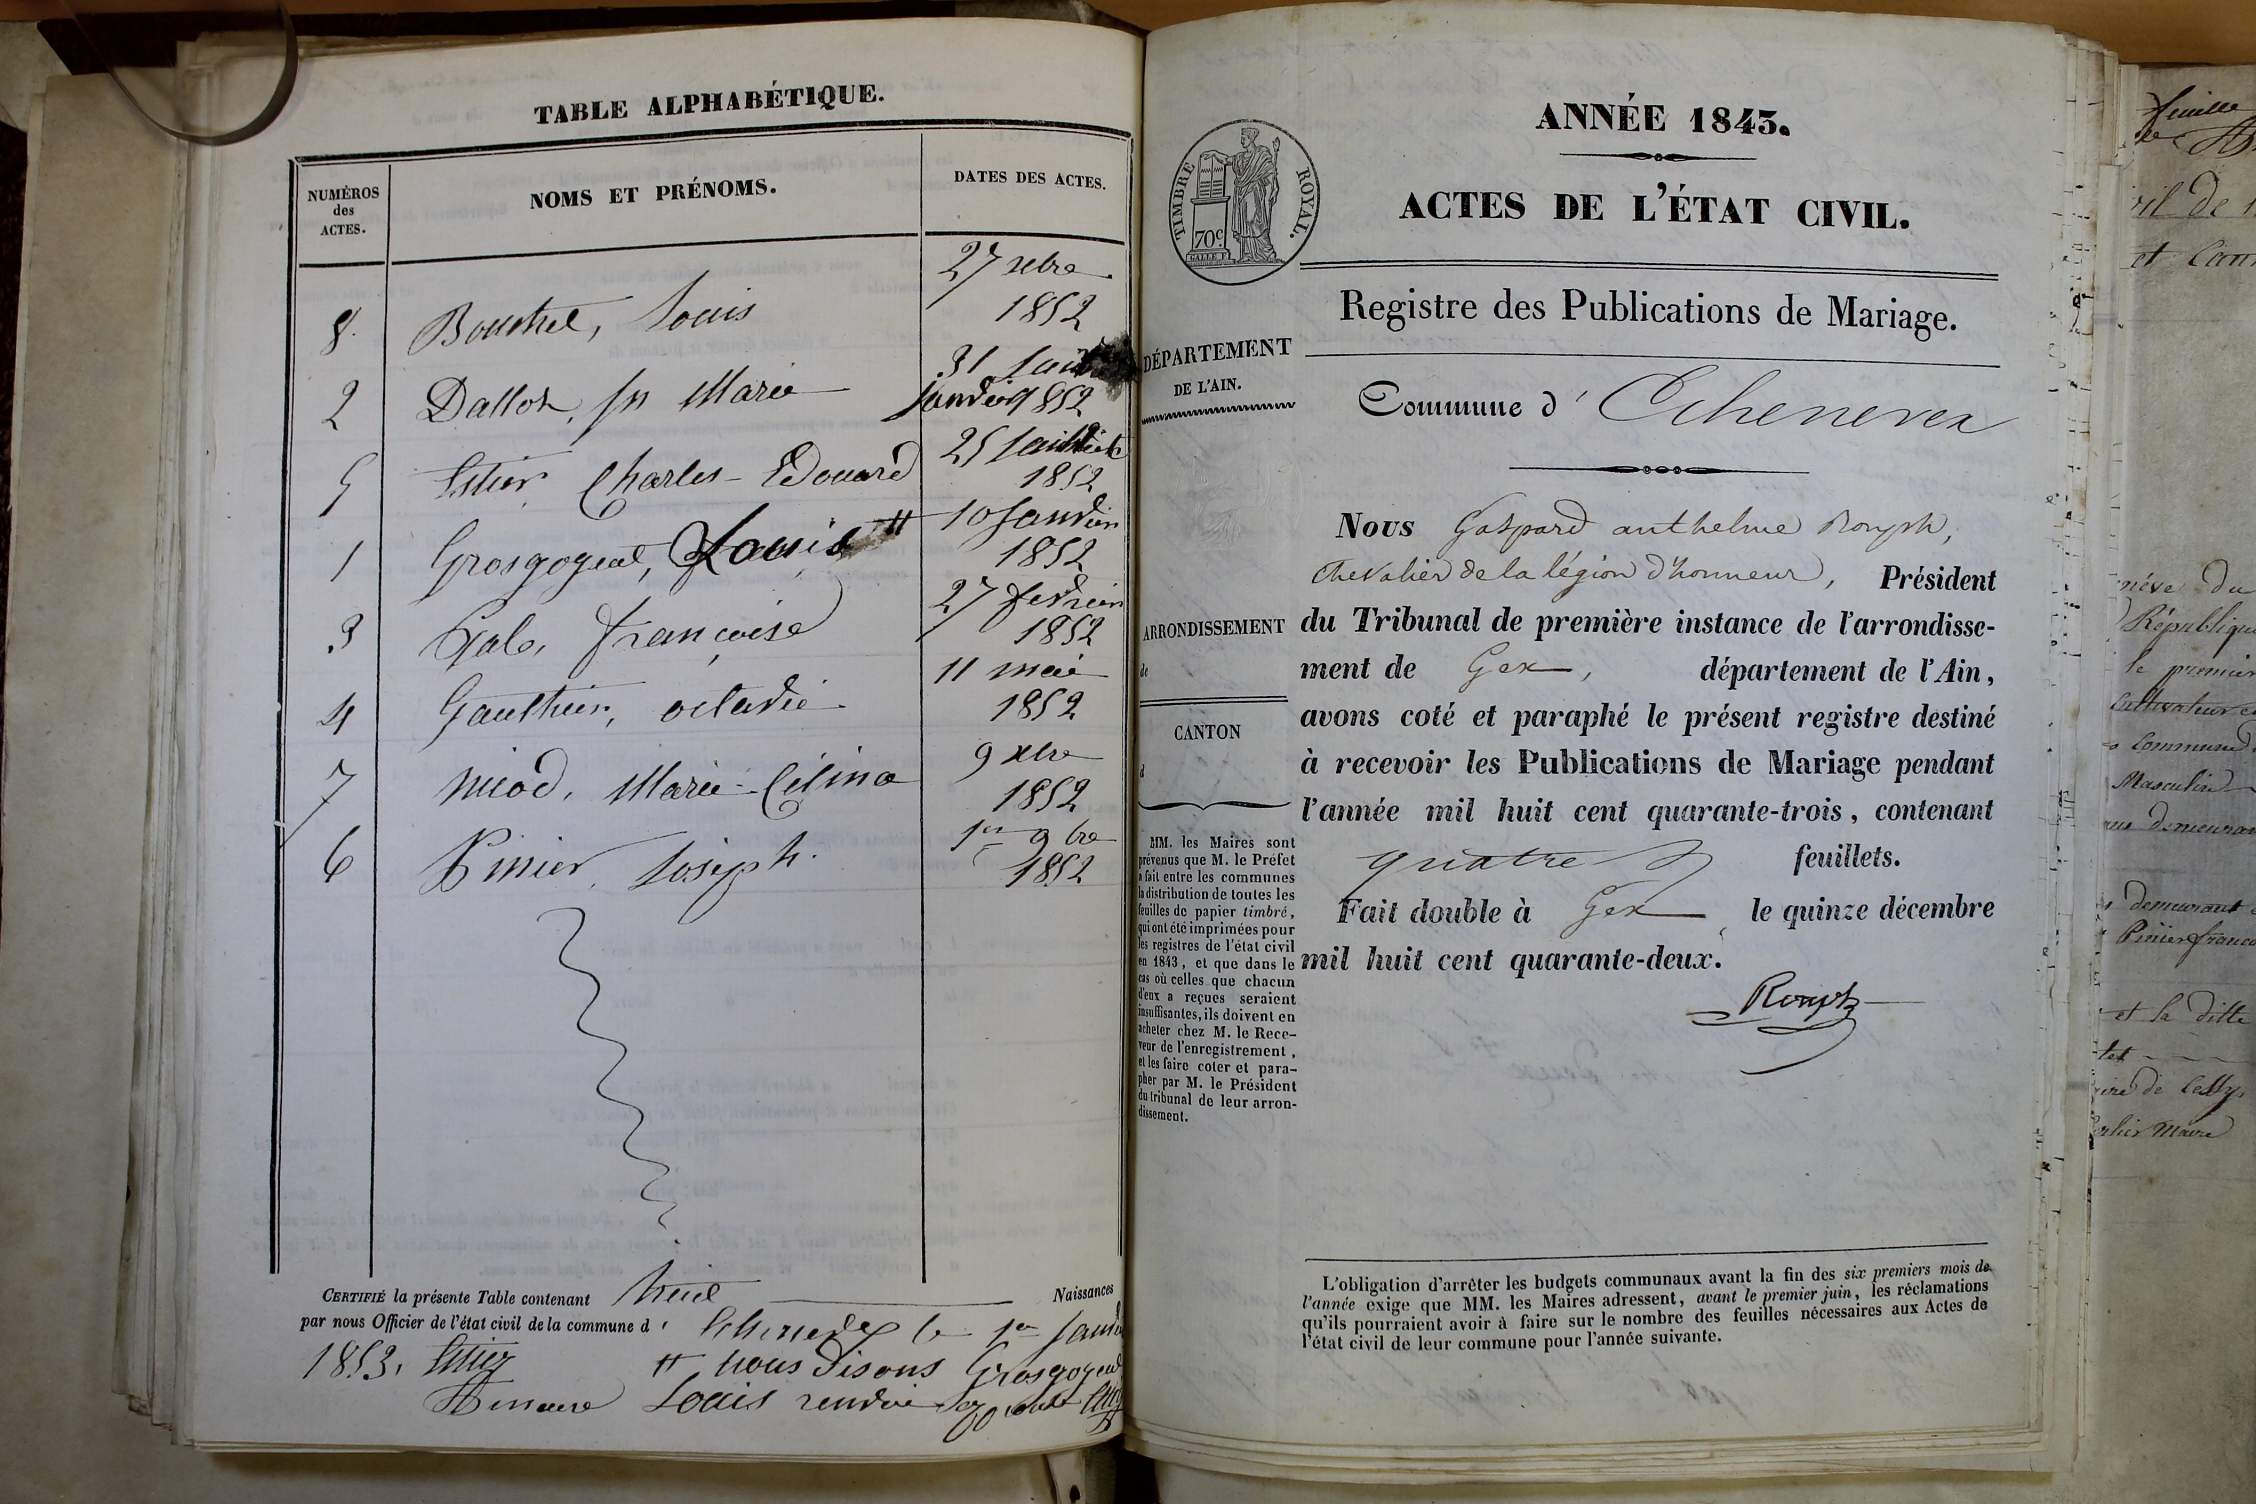 TABLE ALPHABÉTIQUE.
NUMÉROS des ACTES.
NOMS ET PRÉNOMS.
DATES DES ACTES.
8. Bouchet, Louis 27 xbre 1852
2 Dallox, Marie 31 Janvier 1852
5 Estier Charles-Edouard 25 1852
1 Grosgogeat, Louis # 10 Janvier 1852
3 Gale, françoise 27 fevrier 1852
4 Gauthier, octavie 11 mai 1852
7 Niod, Marie-Célina 9 xbre 1852
6 Pinier, Joseph. 1er 9bre 1852
CERTIFIÉ la présente Table contenant huit Naissances
par nous Officier de l'état civil de la commune d' Echenevex le 1er Janvier
1853. Estier # nous disons Grosgogeat
maire Louis
ANNÉE 1843.
ACTES DE L'ÉTAT CIVIL.
TIMBRE ROYAL.
70c
Registre des Publications de Mariage.
DÉPARTEMENT
DE L'AIN.
Commune d' Echenevex
ARRONDISSEMENT
de
CANTON
d
Nous Gaspard anthelme Rouph,
Chevalier de la légion d'honneur, Président
du Tribunal de première instance de l'arrondisse-
ment de Gex, département de l'Ain,
avons coté et paraphé le présent registre destiné
à recevoir les Publications de Mariage pendant
l'année mil huit cent quarante-trois, contenant
quatre feuillets.
Fait double à Gex, le quinze décembre
mil huit cent quarante-deux.
Rouph
MM. les Maires sont
prévenus que M. le Préfet
a fait entre les communes
la distribution de toutes les
feuilles de papier timbré,
qui ont été imprimées pour
les registres de l'état civil
en 1843, et que dans le
cas où celles que chacun
d'eux a reçues seraient
insuffisantes, ils doivent en
acheter chez M. le Rece-
veur de l'enregistrement,
et les faire coter et para-
pher par M. le Président
du tribunal de leur arron-
dissement.
L'obligation d'arrêter les budgets communaux avant la fin des six premiers mois de
l'année exige que MM. les Maires adressent, avant le premier juin, les réclamations
qu'ils pourraient avoir à faire sur le nombre des feuilles nécessaires aux Actes de
l'état civil de leur commune pour l'année suivante.
feuille
République
le premier
Masculin
demeurant
Pinier franc
et la ditte
Maire